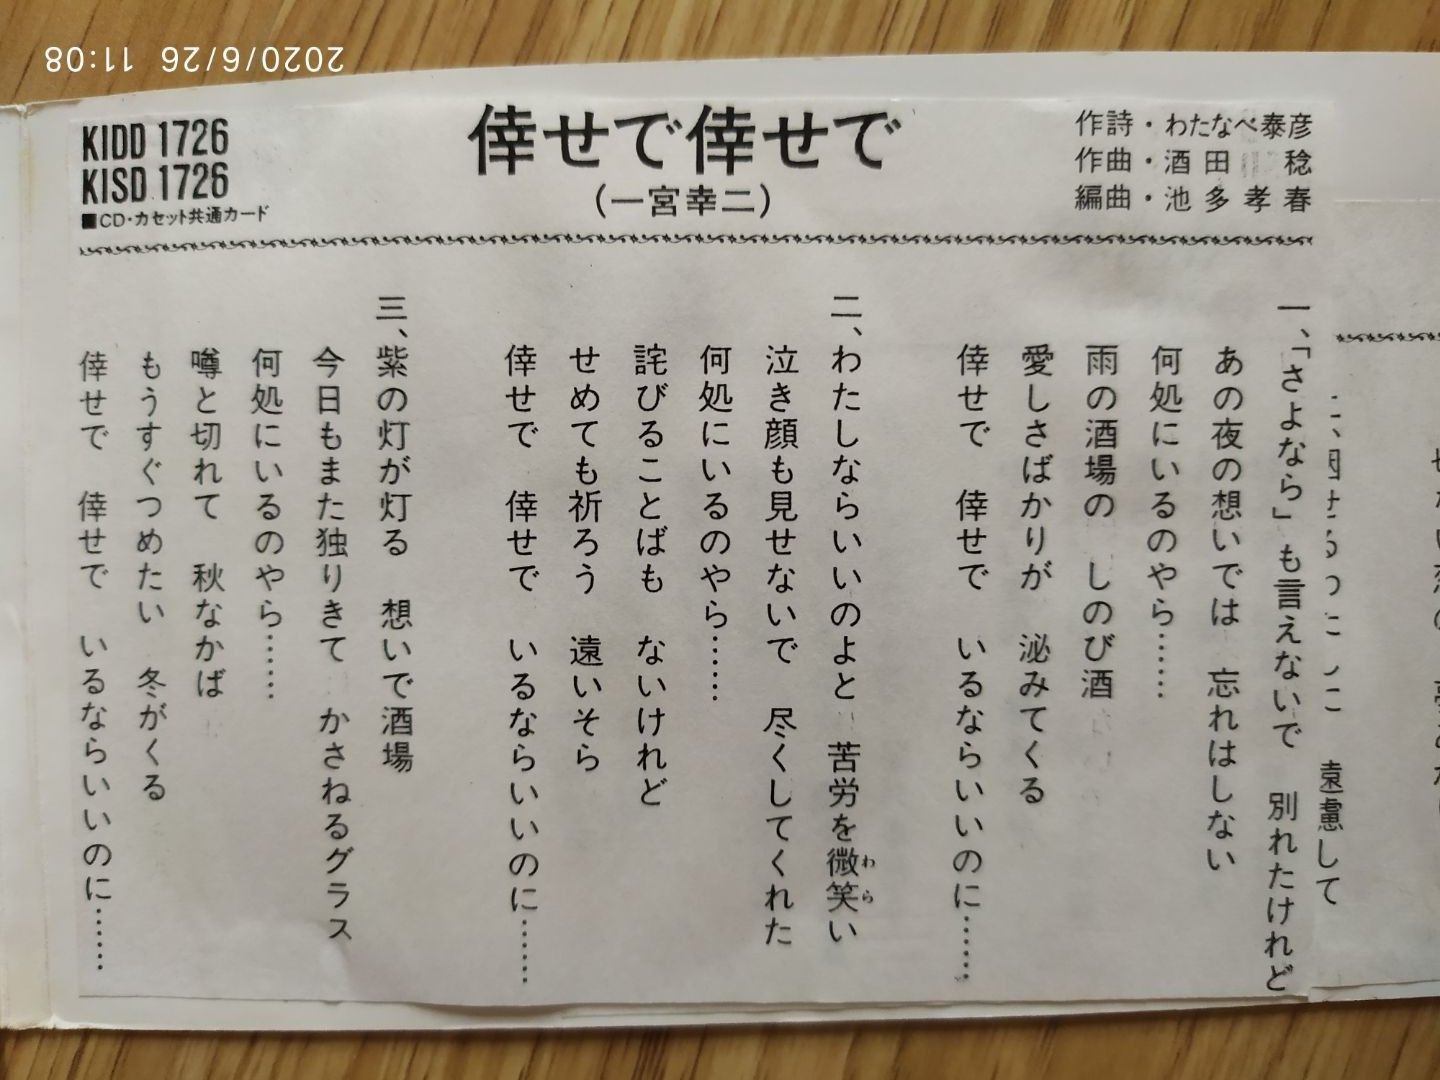 2020/6/26 11:08
KIDD 1726
KISD 1726
■CD・カセット共通カード
倖せで倖せで
(一宮幸二)
作詩・わたなべ泰彦
作曲・酒田 稔
編曲・池多孝春
遠慮して
一、「さよなら」も言えないで 別れたけれど
あの夜の想いでは 忘れはしない
何処にいるのやら……
雨の酒場の しのび酒
愛しさばかりが 泌みてくる
倖せで 倖せで いるならいいのに……
二、わたしならいいのよと 苦労を微笑い
わら
泣き顔も見せないで 尽くしてくれた
何処にいるのやら……
詫びることばも ないけれど
せめても祈ろう 遠いそら
倖せで 倖せで いるならいいのに……
三、紫の灯が灯る 想いで酒場
今日もまた独りきて かさねるグラス
何処にいるのやら……
噂と切れて 秋なかば
もうすぐつめたい 冬がくる
倖せで 倖せで いるならいいのに……